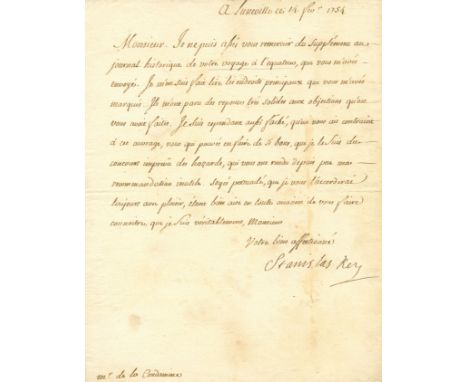 A Luneville ce 14 fev.r 1754
Monsieur. Je ne puis assés vous remercier du Supplément au
journal historique de votre voyage à l'equateur, que vous m'avés
envoyé. Je m'en suis fait lire les endroits principaux que vous m'avés
marqués. Ils m'ont paru des reponses très solides aux objections qu'on
vous avoit faites. Je suis cependant aussi faché, qu'on vous ait contraint
à cet ouvrage, vous qui pouvés en faire de si bons, que je le suis du
concours imprévu des hazards, qui vous ont rendu depuis peu ma
recommandation inutile. Soyés persuadé, que je vous l'accorderai
toujours avec plaisir, étant bien aise en toute occasion de vous faire
connoitre que je suis véritablement, Monsieur
Votre bien affectionné
Stanislas Roy
m.r de la Condamine